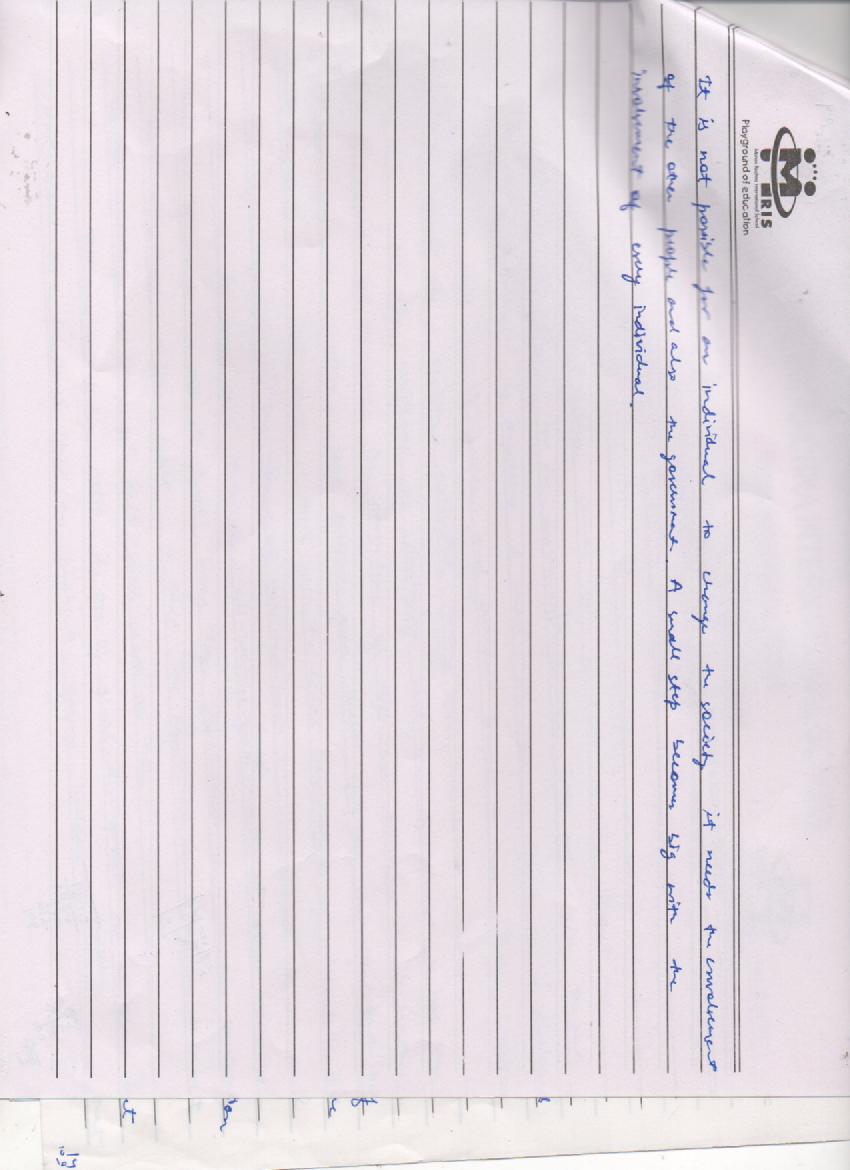 IRIS
Playground of education
It is not possible for an individual to change the society it needs the envolvement
of the other people and also the government. A small step becomes big with the
involvement of every individual.